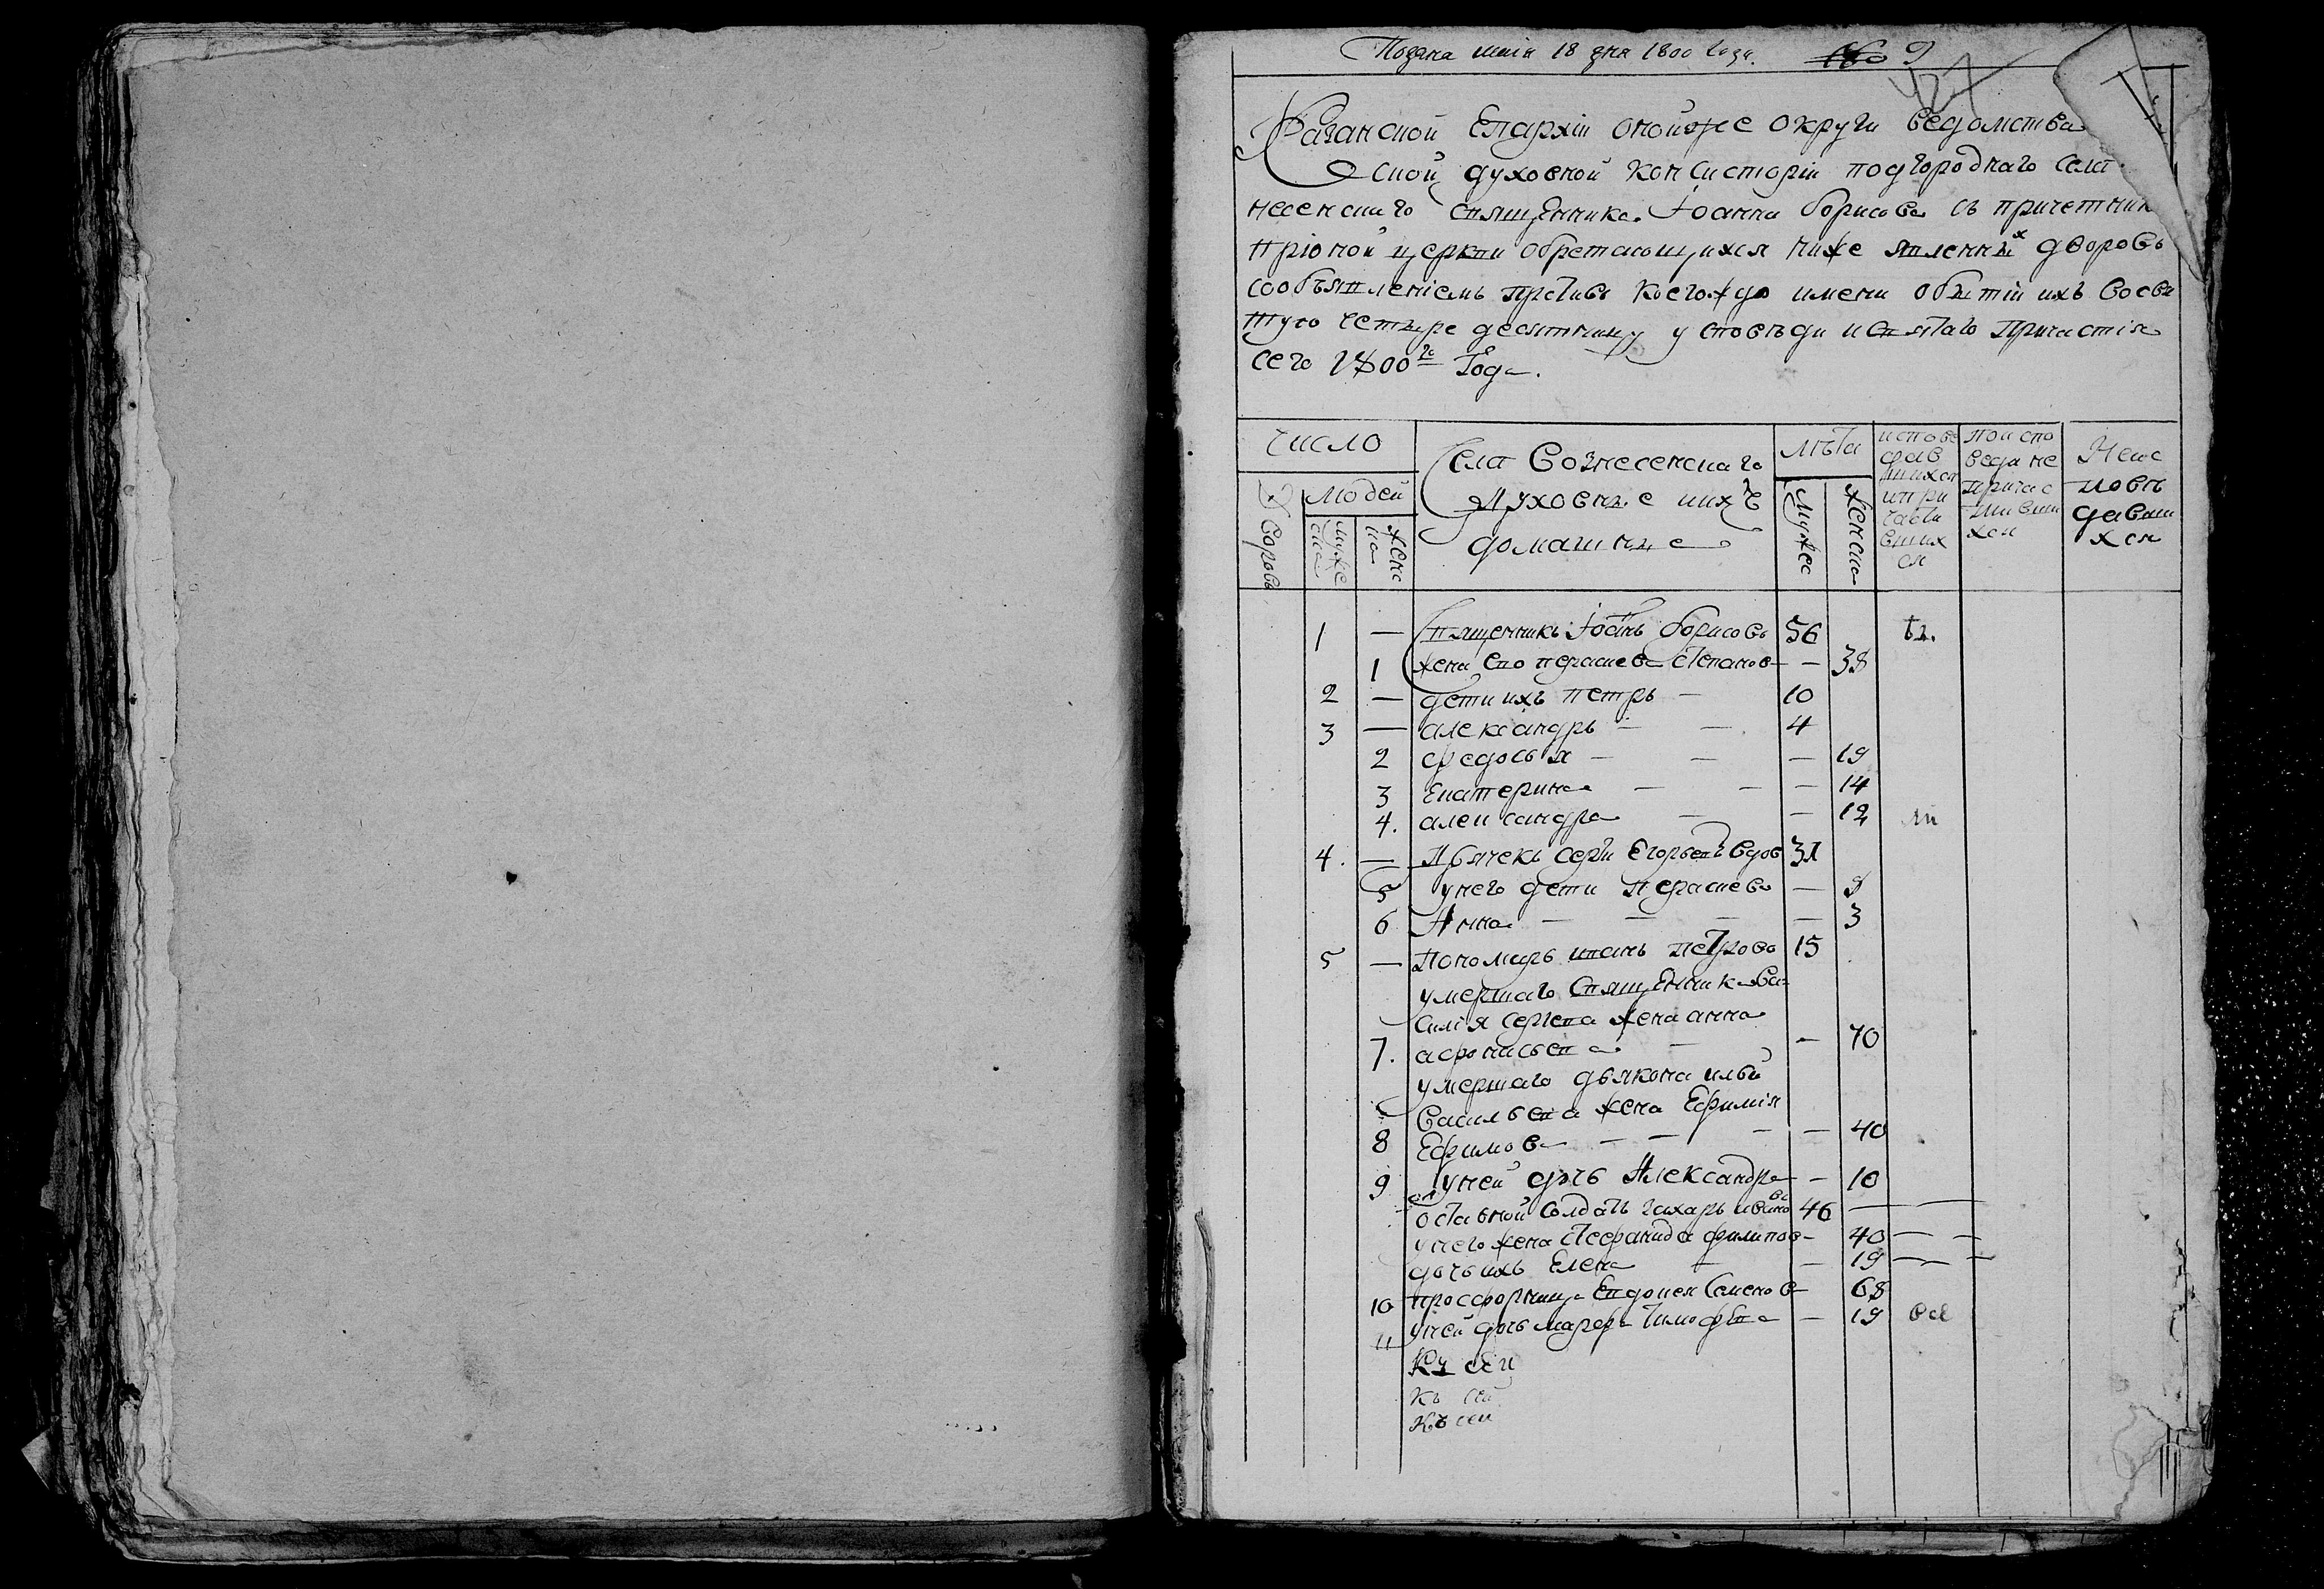 Подана маія 18 дня 1800 года. 160 9
427
Казанской Епархіи оной же округи ведомства
ской духовной консисторіи подгороднаго села
несенскаго священника Іоанна борисова съ причетник
пріоной церкви обретающихся ниже явленных дворовъ
сообъявленіемъ противъ коегождо имени о бытіи ихъ восвя
тую четыре десятницу у споведи и святаго причастія
сего 1800го Года.
Число
Села Вознесенскаго
лѣта
испове
дав
шихся
ипри
части
вших
ся
поиспо
веди не
причас
тивши
хся
Неис
повѣ
давши
хся
Дворовъ
людей
Духовные иихъ
домашные
муже
ска
женс
ка
мужес
женска
1 — священникъ Іоаннъ борисовъ 56 бы.
1 жена его парасковья Степанов — 38
2 — дети ихъ петръ — 10
3 — александръ — — 4
2 федосья — — — 19
3 Екатерина — — — 14
4. александра — — 12 ли
4. — Дьячекъ серги Егорьевъ вдов 31
5 унего дети парасковь — 8
6 Анна — — — — 3
5 — Пономарь иванъ петровъ 15
умершаго священника ва-
силія сергева жена анна
7. афонасьева — — 70
умершаго дьякона ильи
васильева жена Ефимія
8 Ефимова — — — — 40
9 уней дочь Александра — 10
отставной солдатъ захаръ ивановъ 46 —
унего жена Стефанида филипов — 40 — —
дочь ихъ Елена — — 19 — —
10 просфорница Евдокея Семенов — 68
11 уней дочь марфа тимофева — 19 все
Къ сей
Къ сей
Къ сей